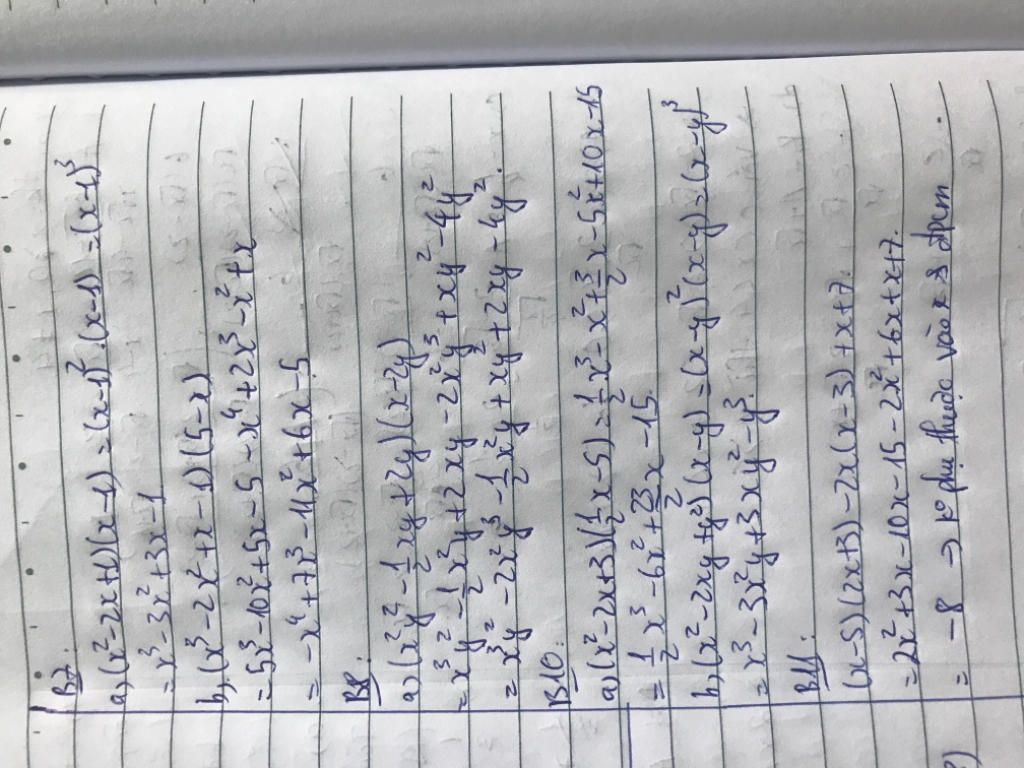 B7.
a) (x² - 2x + 1)(x - 1) = (x - 1)² . (x - 1) = (x - 1)³
= x³ - 3x² + 3x - 1
b) (x³ - 2x² + x - 1)(5 - x)
= 5x³ - 10x² + 5x - 5 - x⁴ + 2x³ - x² + x
= -x⁴ + 7x³ - 11x² + 6x - 5
B8.
a) (x²y² - 1/2xy + 2y)(x - 2y)
= x³y² - 1/2x²y + 2xy - 2x²y³ + xy² - 4y²
= x³y² - 2x²y³ - 1/2x²y + xy² + 2xy - 4y².
B10.
a) (x² - 2x + 3)(1/2x - 5) = 1/2x³ - x² + 3/2x - 5x² + 10x - 15
= 1/2x³ - 6x² + 23/2x - 15.
b) (x² - 2xy + y²)(x - y) = (x - y)²(x - y) = (x - y)³
= x³ - 3x²y + 3xy² - y³.
B11.
(x - 5)(2x + 3) - 2x(x - 3) + x + 7.
= 2x² + 3x - 10x - 15 - 2x² + 6x + x + 7.
= -8 → ko phụ thuộc vào x đpcm